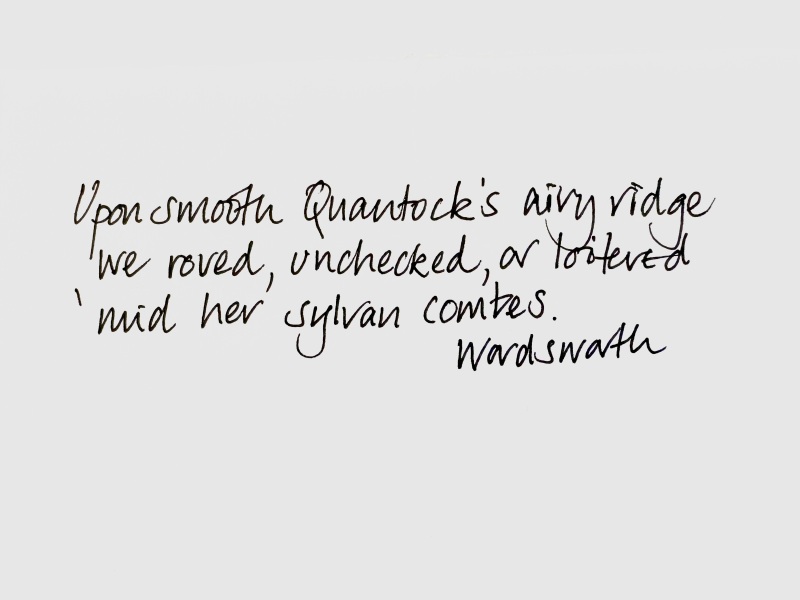 Upon smooth Quantock's airy ridge
we roved, unchecked, or loitered
'mid her sylvan combes.
Wordsworth